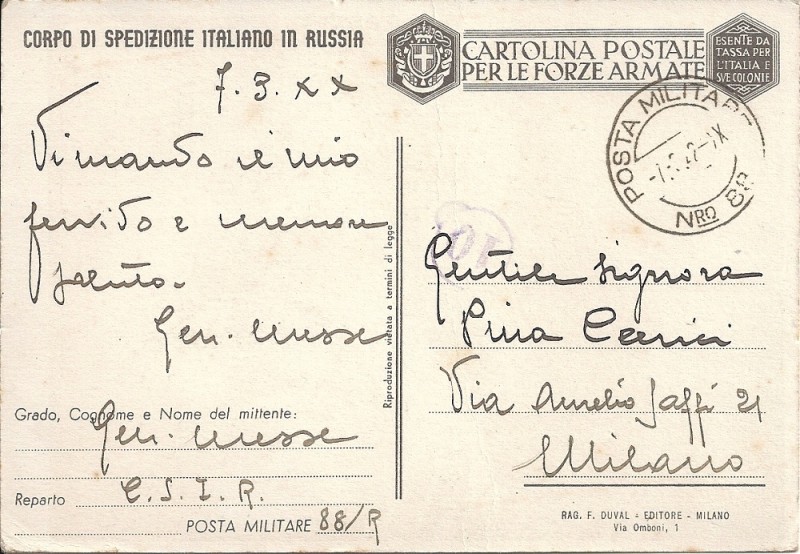 CORPO DI SPEDIZIONE ITALIANO IN RUSSIA
CARTOLINA POSTALE
PER LE FORZE ARMATE
ESENTE DA
TASSA PER
L'ITALIA E
SVE COLONIE
7. 3. XX
POSTA MILITARE
NRO 88
Vi mando il mio
fervido e memore
saluto.
Gen. Messe
Riproduzione vietata a termini di legge
Gentile Signora
Pina
Via Aurelio Saffi 21
Milano
Grado, Cognome e Nome del mittente:
Gen. Messe
Reparto C.S.I.R.
POSTA MILITARE 88/R
RAG. F. DUVAL - EDITORE - MILANO
Via Omboni, 1